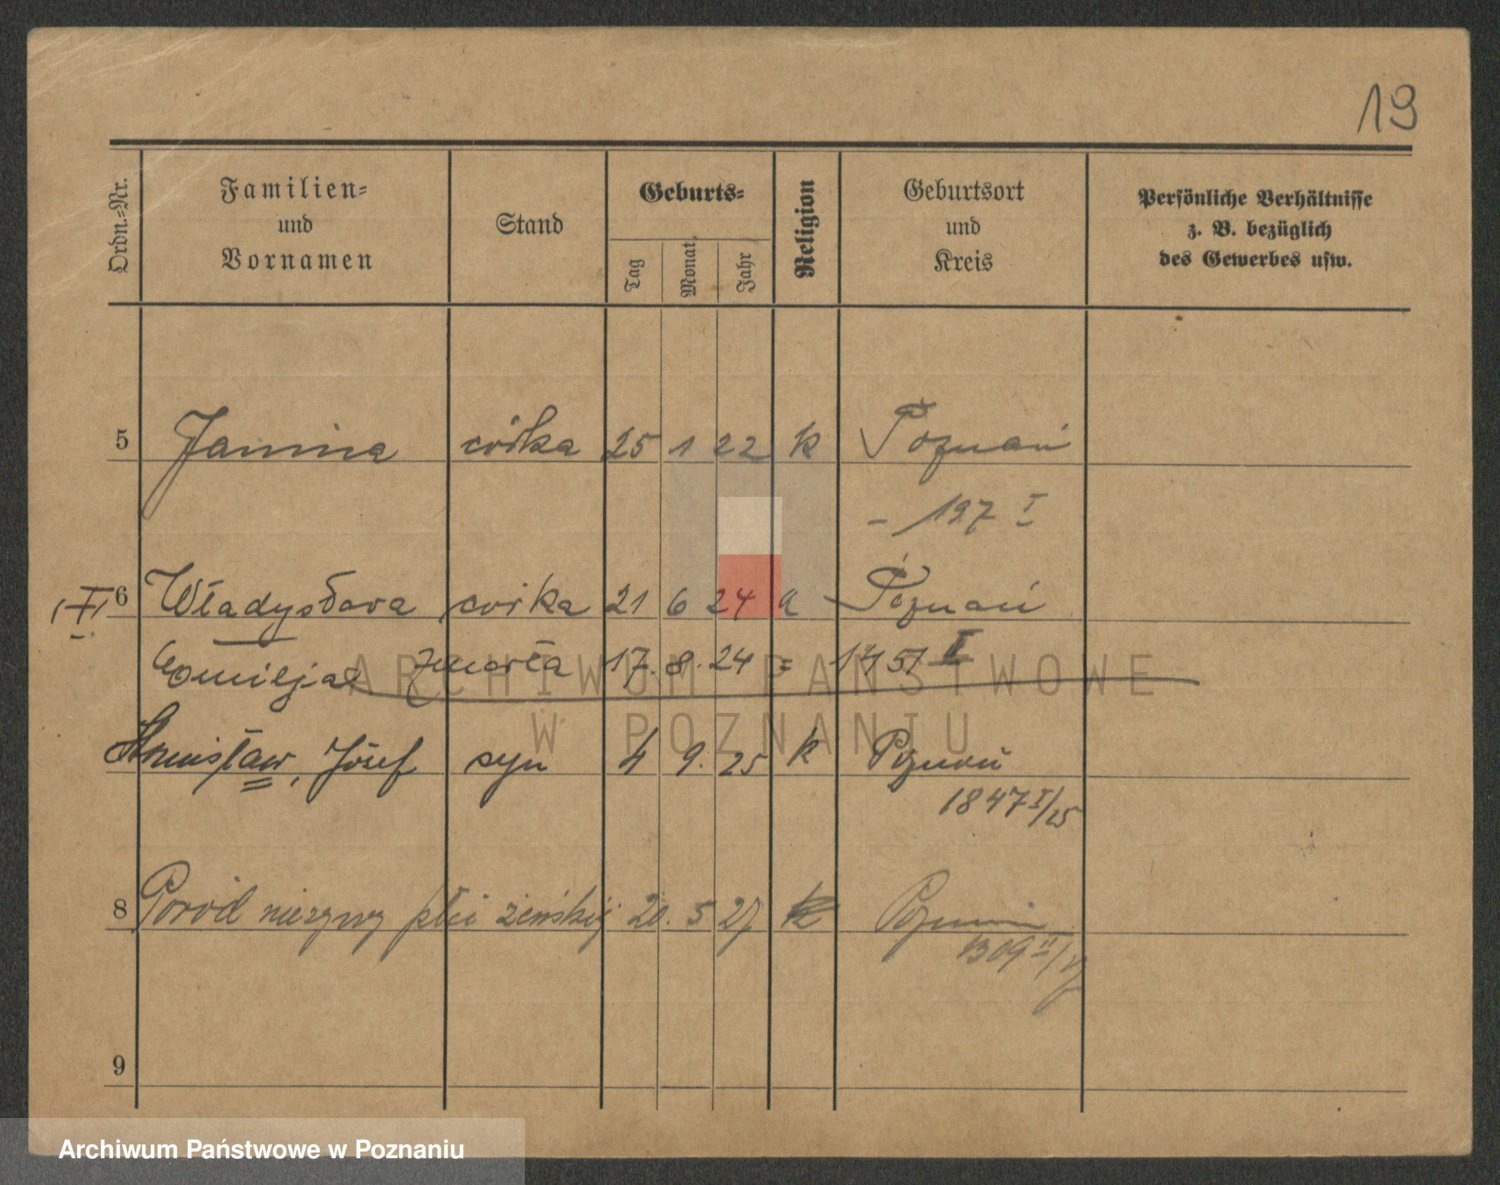 19
Ordn.-Nr.
Familien-
und
Vornamen
Stand
Geburts-
Tag
Monat
Jahr
Religion
Geburtsort
und
Kreis
Persönliche Verhältnisse
z. B. bezüglich
des Gewerbes usw.
5 Janina córka 25 1 22 k Poznań
- 197 I
6 Władysława córka 21 6 24 Poznań
Emilja zmarła 17. 8. 24 = 1451 II
Stanisław, Józef syn 4 9. 25 k Poznań
1847 I/25
8 Poród nieżywy płci żeńskiej 20. 5 27 k Poznań
1309 II/27
9
ARCHIWUM PAŃSTWOWE
W POZNANIU
Archiwum Państwowe w Poznaniu